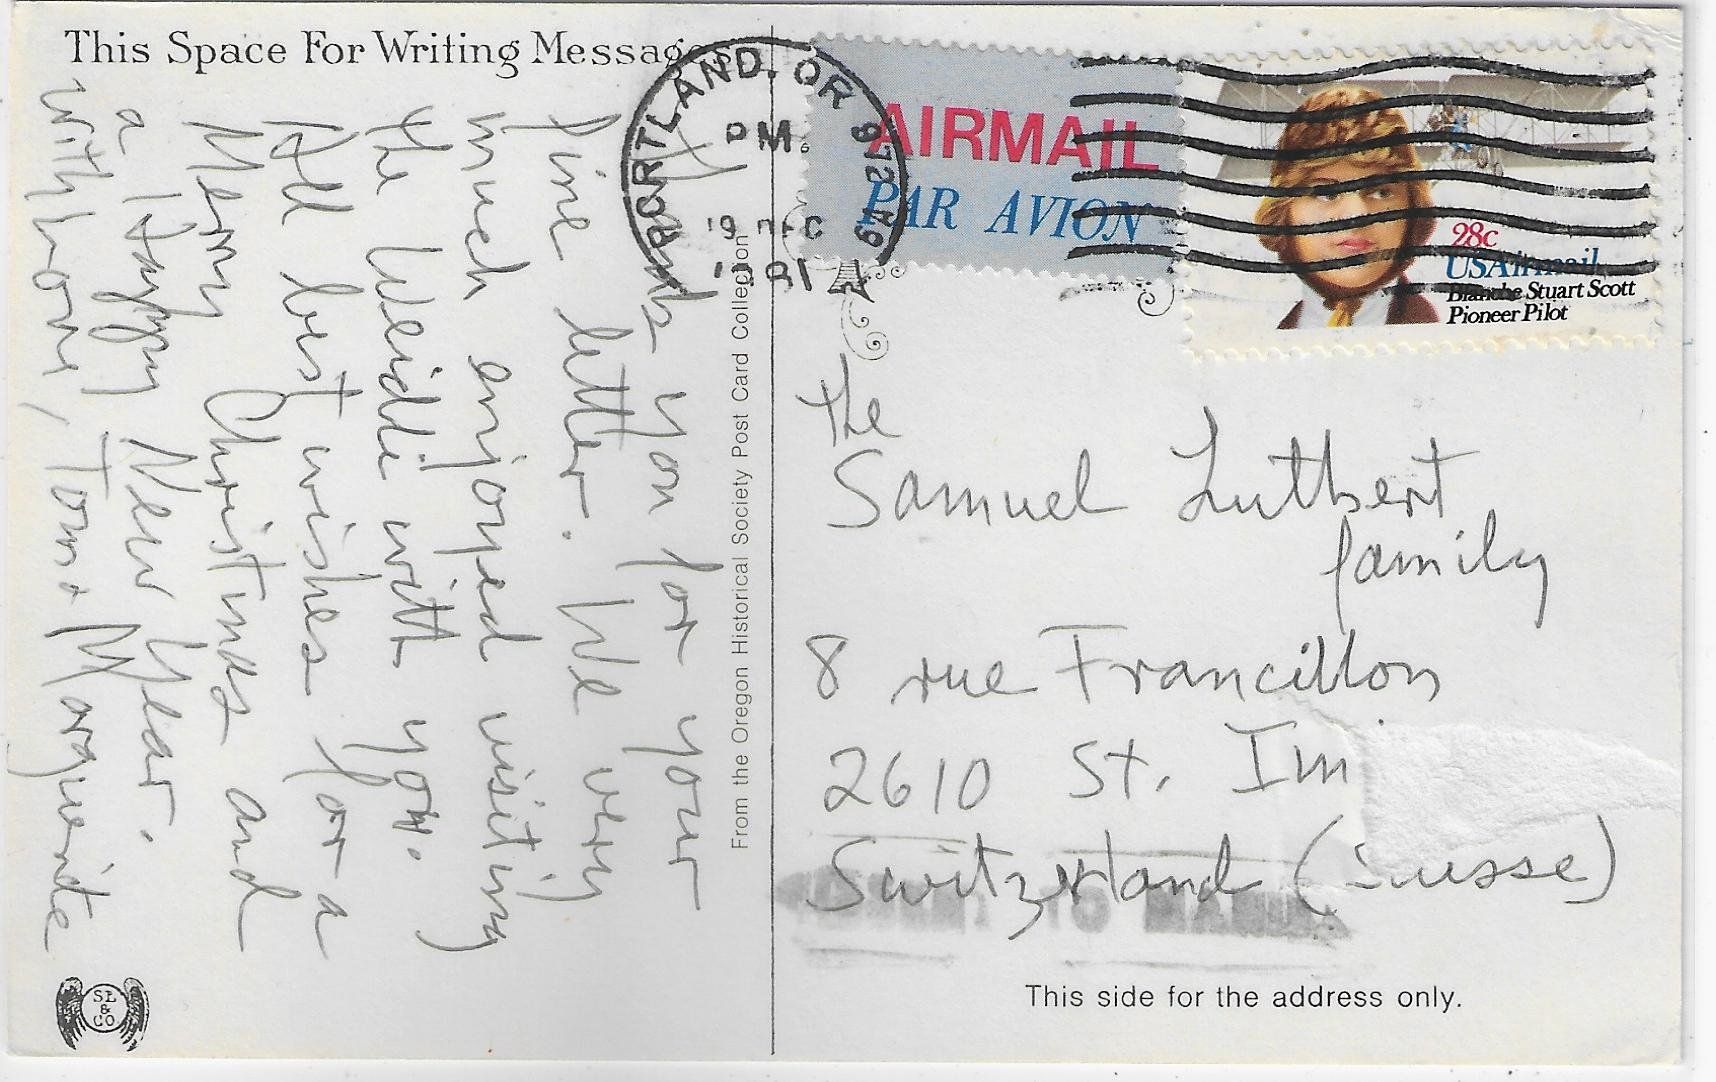 This Space For Writing Messages
Thank you for your
fine letter. We very
much enjoyed visiting
the Weidli with you.
All best wishes for a
Merry Christmas and
a Happy New Year.
with love, Tom + Marguerite
From the Oregon Historical Society Post Card Collection
SL
&
CO
PORTLAND, OR 972
PM
19 DEC
1981
AIRMAIL
PAR AVION
28c
USAirmail
Blanche Stuart Scott
Pioneer Pilot
the
Samuel Luthert
family
8 rue Francillon
2610 St. Im
Switzerland (Suisse)
This side for the address only.